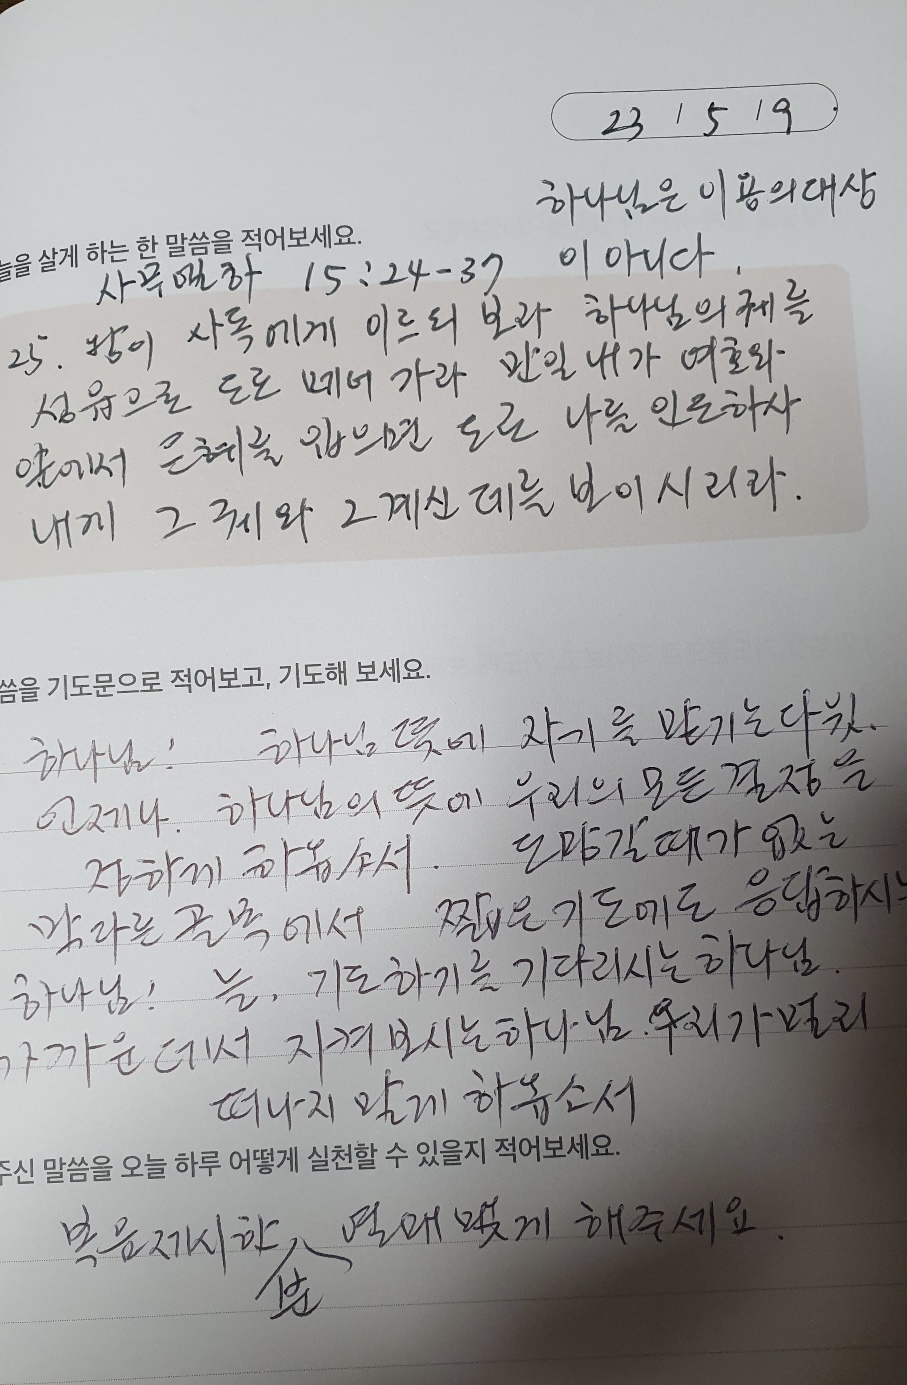 23 / 5 / 19
하나님은 이용의대상
이 아니다.
늘을 살게 하는 한 말씀을 적어보세요.
사무엘하 15:24-37
25. 왕이 사독에게 이르되 보라 하나님의 궤를
성읍으로 도로 메어 가라 만일 내가 여호와
앞에서 은혜를 입으면 도로 나를 인도하사
내게 그 궤와 그 계신 데를 보이시리라.
씀을 기도문으로 적어보고, 기도해 보세요.
하나님! 하나님 뜻에 자기를 맡기는 다윗.
언제나. 하나님의 뜻에 우리의 모든 결정을
정하게 하옵소서. 도망갈 때가 없는
막다른 골목에서 짧은 기도에도 응답하시는
하나님! 늘, 기도하기를 기다리시는 하나님.
가까운데서 지켜보시는 하나님. 우리가 멀리
떠나지 않게 하옵소서
주신 말씀을 오늘 하루 어떻게 실천할 수 있을지 적어보세요.
복음제시한 분 열매 맺게 해주세요.